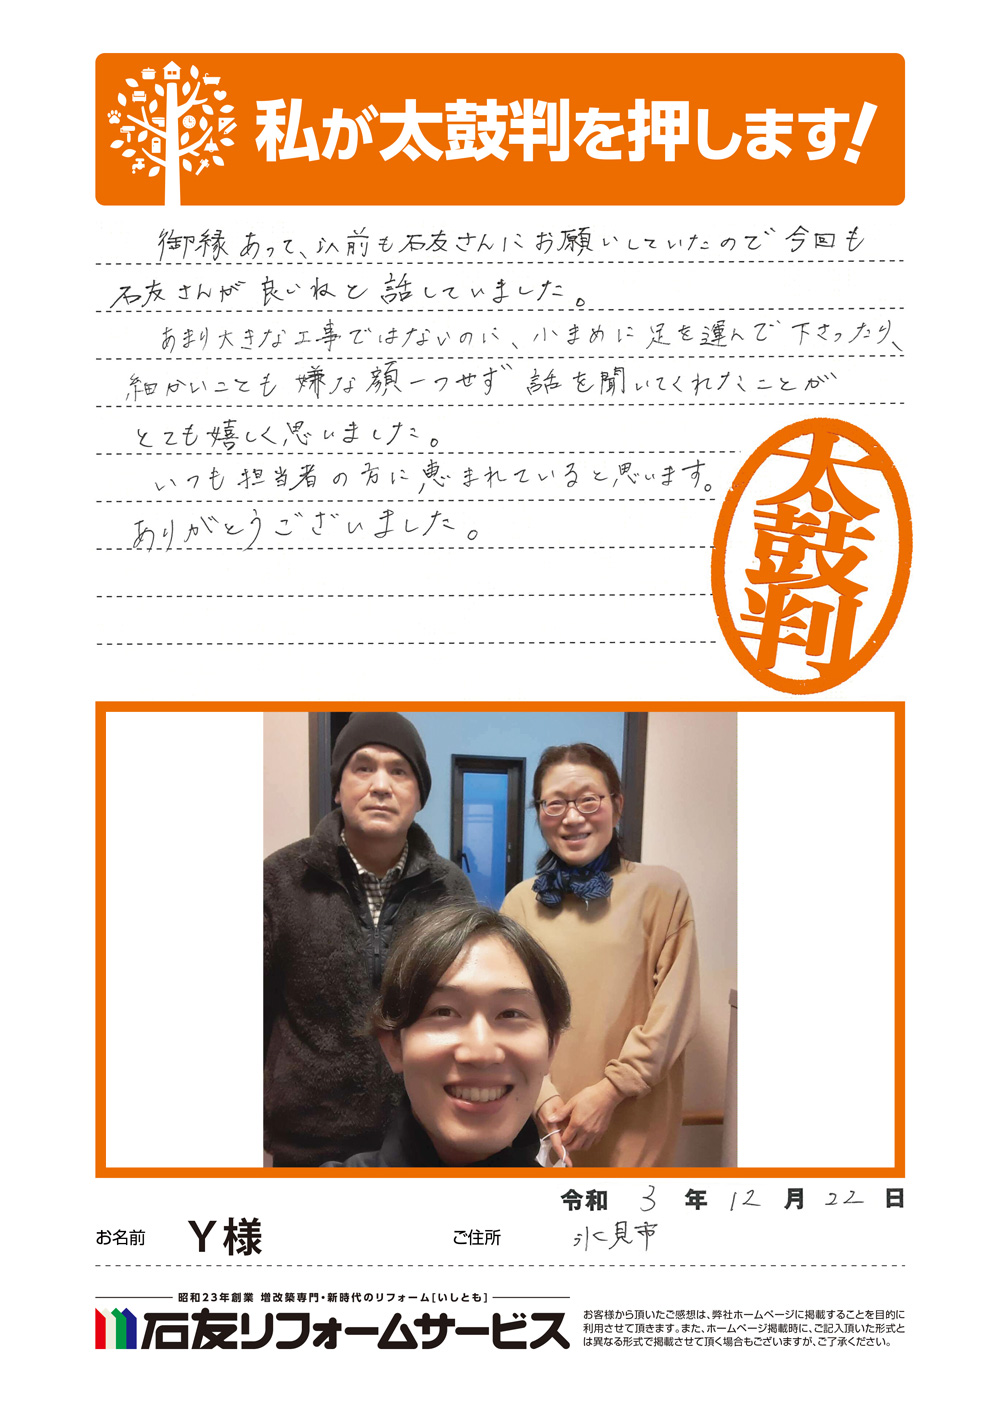 私が太鼓判を押します!
御縁あって、以前も石友さんにお願いしていたので今回も
石友さんが良いねと話していました。
あまり大きな工事ではないのに、小まめに足を運んで下さったり、
細かいことも嫌な顔一つせず話を聞いてくれたことが
とても嬉しく思いました。
いつも担当者の方に恵まれていると思います。
ありがとうございました。
太鼓判
令和 3 年 12 月 22 日
お名前 Y様 ご住所 氷見市
昭和23年創業 増改築専門・新時代のリフォーム[いしとも]
石友リフォームサービス
お客様から頂いたご感想は、弊社ホームページに掲載することを目的に
利用させて頂きます。また、ホームページ掲載時に、ご記入頂いた形式と
は異なる形式で掲載させて頂く場合もございますが、ご了承ください。